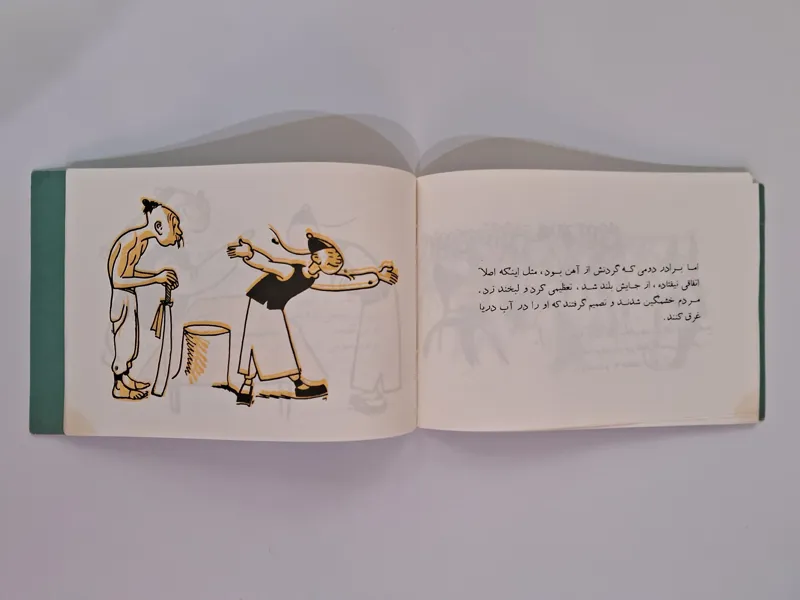 اما برادر دومی که گردنش از آهن بود، مثل اینکه اصلاً
اتفاقی نیفتاده، از جایش بلند شد، تعظیمی کرد و لبخند زد.
مردم خشمگین شدند و تصمیم گرفتند که او را در آب دریا
غرق کنند.